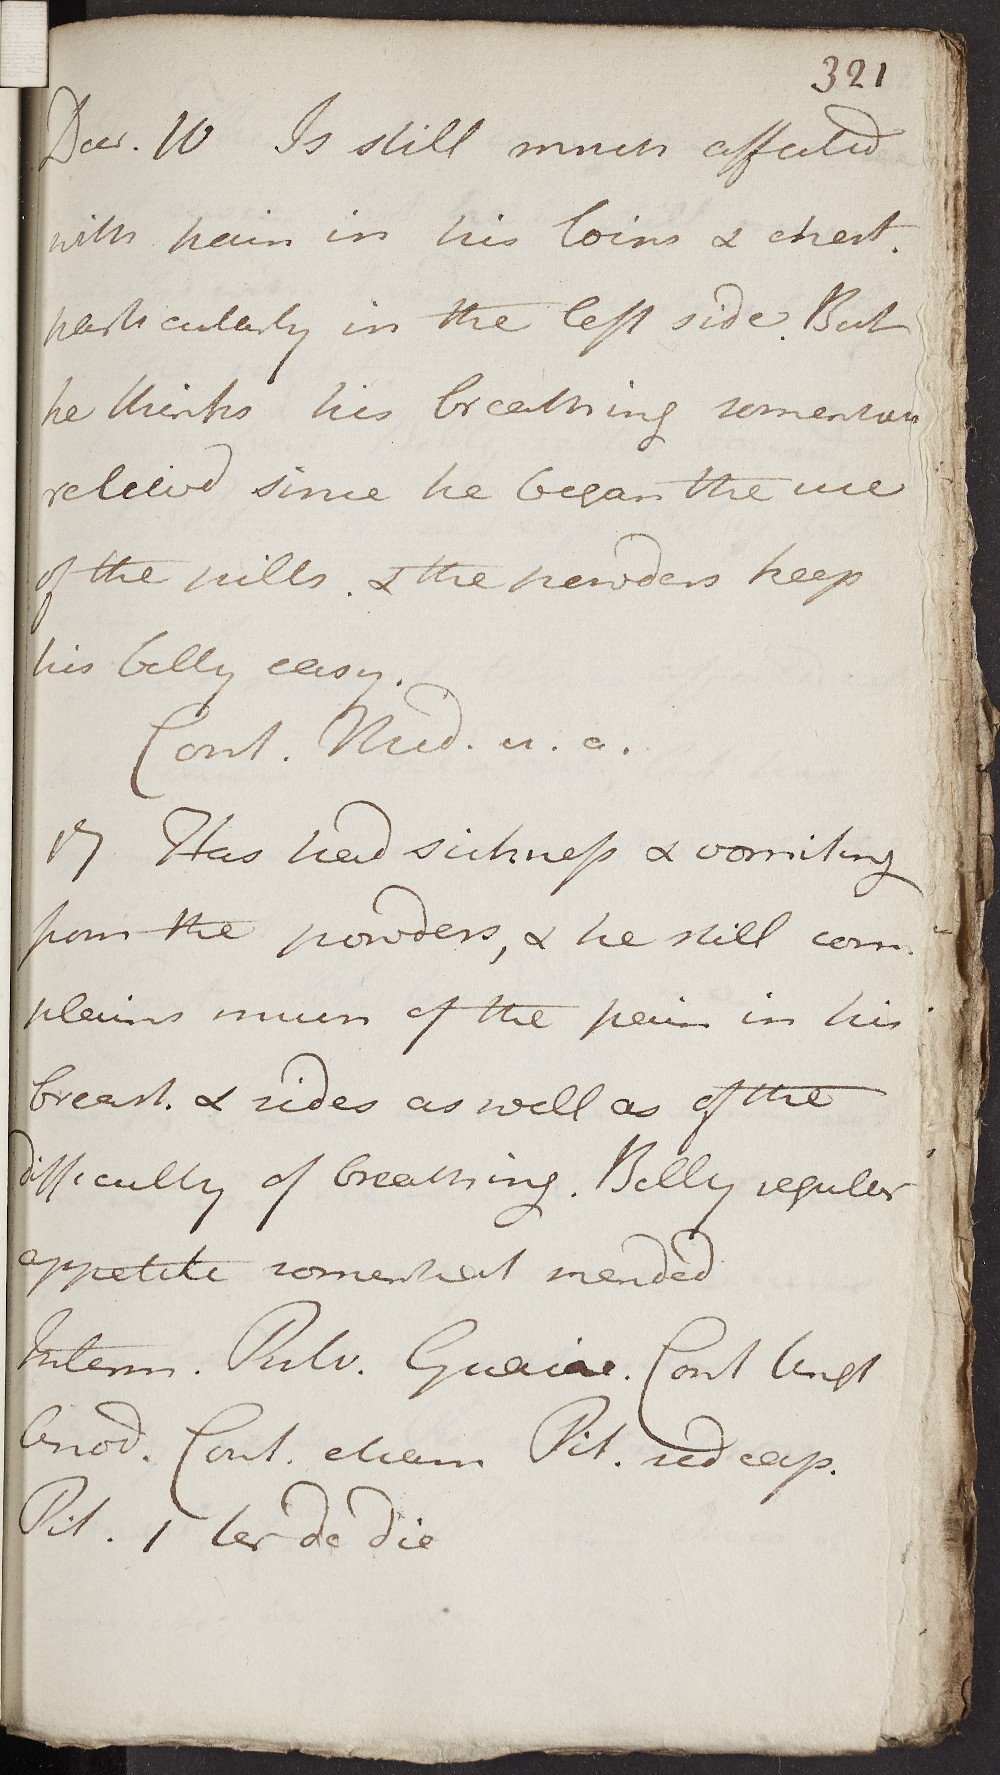 321
Decr. 10 Is still much affected
with pain in his loins & chest.
particularly in the left side. But
he thinks his breathing somewhat
releived since he began the use
of the pills. & the powders keep
his belly easy.
Cont. Med. u. a.
17 Has had sickness & vomiting
from the powders, & he still com-
plains much of the pain in his
breast. & sides as well as of the
difficulty of breathing. Belly regular
appetite somewhat mended
Interm. Pulv. Guaiac. Cont Ungt
Anod. Cont. etiam Pil. sed cap.
Pil. 1 ter de die